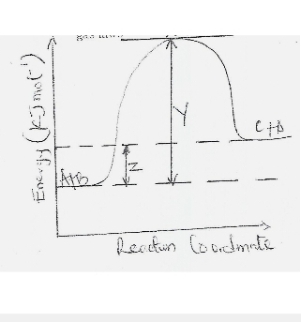 Energy (KJ mol⁻¹)
Y
C+D
A+B
Z
Reaction Coordinate